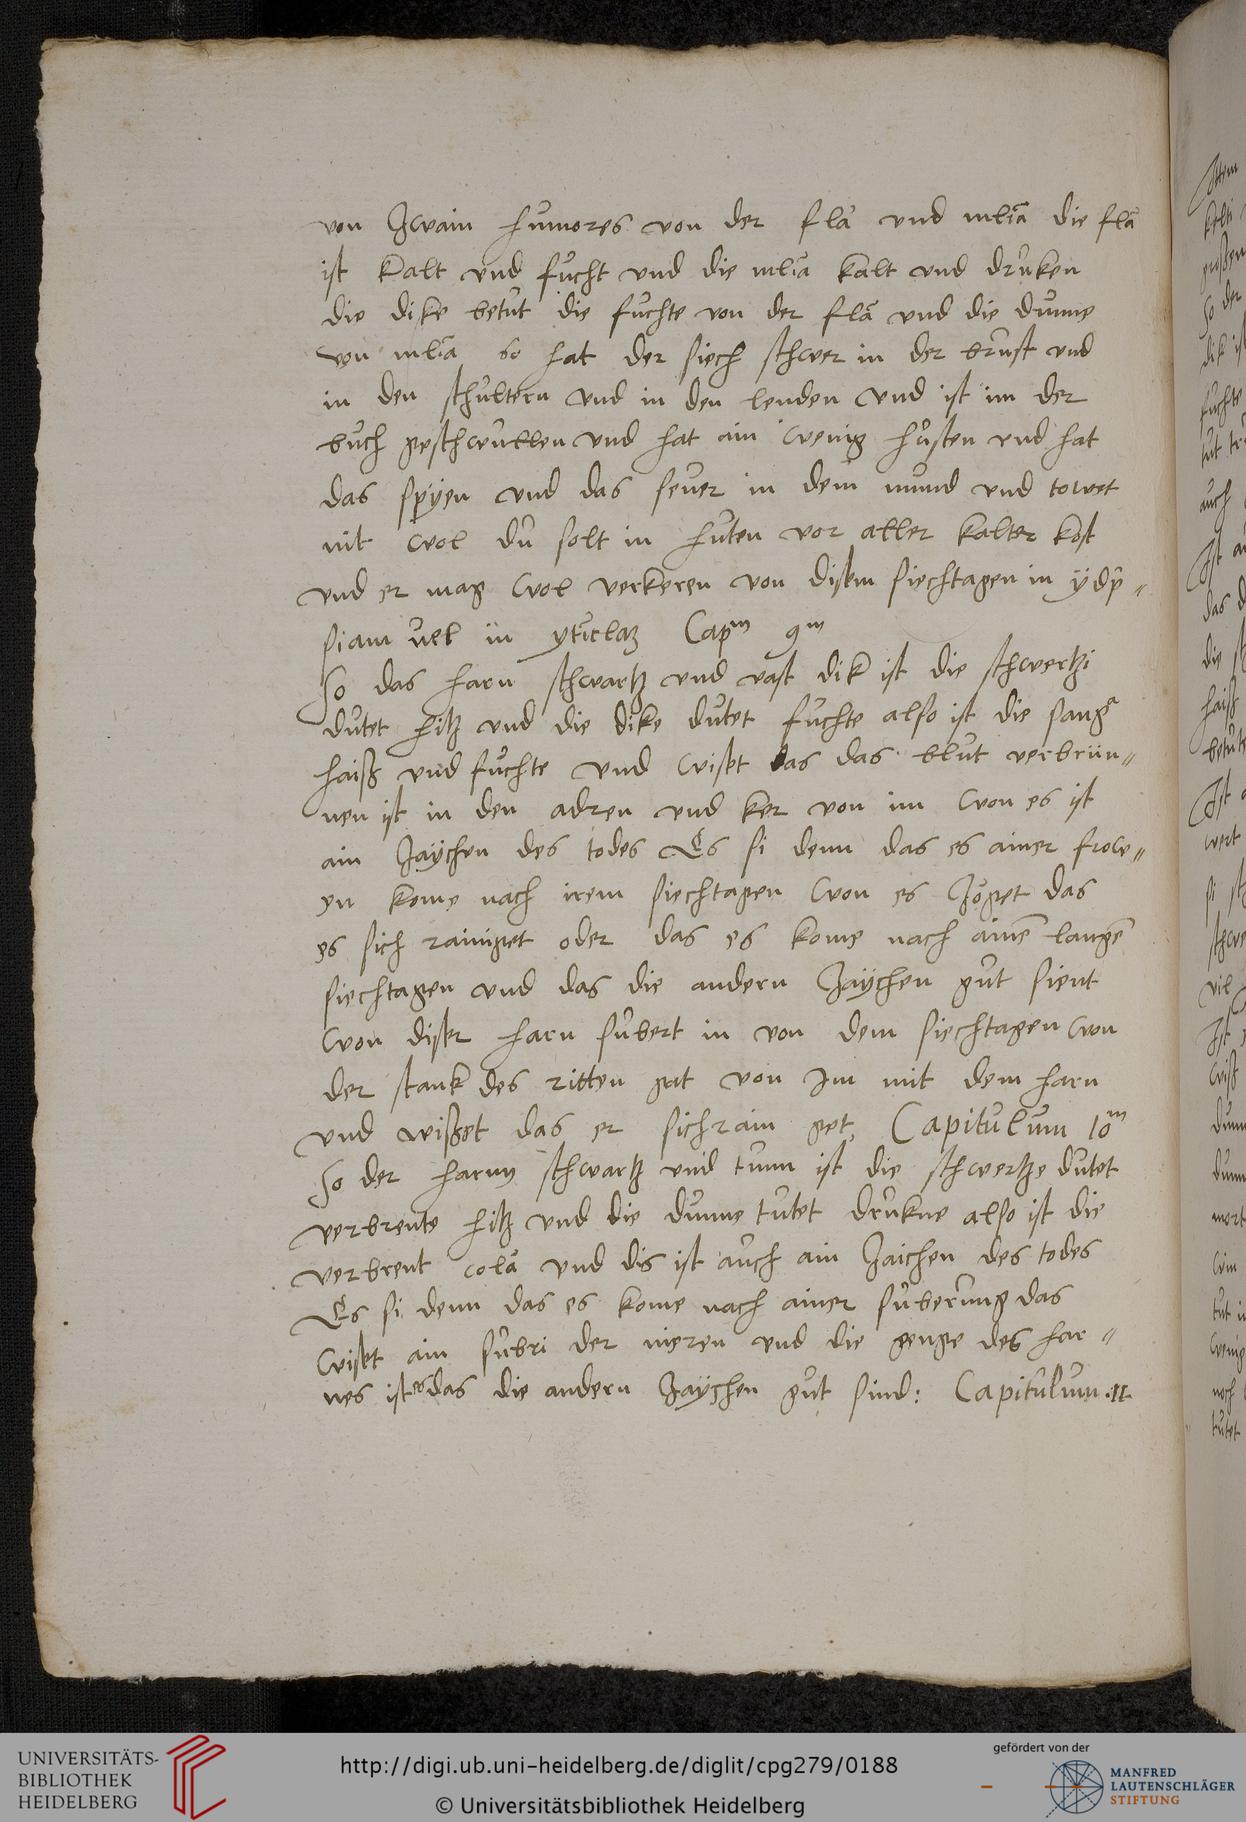 von Zwain humores von der fla͞ vnd mlia͞ die fla͞
ist kalt vnd fücht vnd die mlia͞ kalt vnd druken
die dike betüt die füchte von der fla͞ vnd die dünne
von mlia͞ so hat der siech schwer in der brust vnd
in den schultern vnd in den lenden vnd ist im der
buch geschwullen vnd hat ain wenig husten vnd hat
das spÿen vnd das sever in dem mund vnd towet
nit wol du solt in hüten vor aller kalter kost
vnd er mag wol verkeren von disem siechtagen in ÿdp̄〃
siam vel in Capm 9m
So das harn schwartz vnd vast dik ist die schwertzi
dütet hitz vnd die dike dütet füchte also ist die sang
haiß vnd füchte vnd wisset das das blut verbrun〃
nen ist in den adren vnd ker von im won es ist
ain Zaÿchen des todes Es si denn das es ainer frow〃
en kome nach irem siechtagen won es Zöget das
es sich rainiget oder das es kome nach aine͞ lange͞
siechtagen vnd das die andern Zaÿchen gut sient
won diser harn subert in von dem siechtagen won
der stank des ritten gat von Im mit dem harn
vnd wisset das er sich rain get Capitulum 10m
So der harnn schwartz vnd tunn ist die schwertze dütet
verbrente hitz vnd die dünne tütet drükne also ist die
verbrent cola͞ vnd dis ist auch ain Zaichen des todes
Es si denn das es kome nach ainer suberung das
wisset ain subri der nieren vnd die genge des har〃
nes ist es das die andern Zaÿchen gut sind: Capitulum .11.
UNIVERSITÄTS-
BIBLIOTHEK
HEIDELBERG
http://digi.ub.uni-heidelberg.de/diglit/cpg279/0188
© Universitätsbibliothek Heidelberg
gefördert von der
MANFRED
LAUTENSCHLÄGER
STIFTUNG